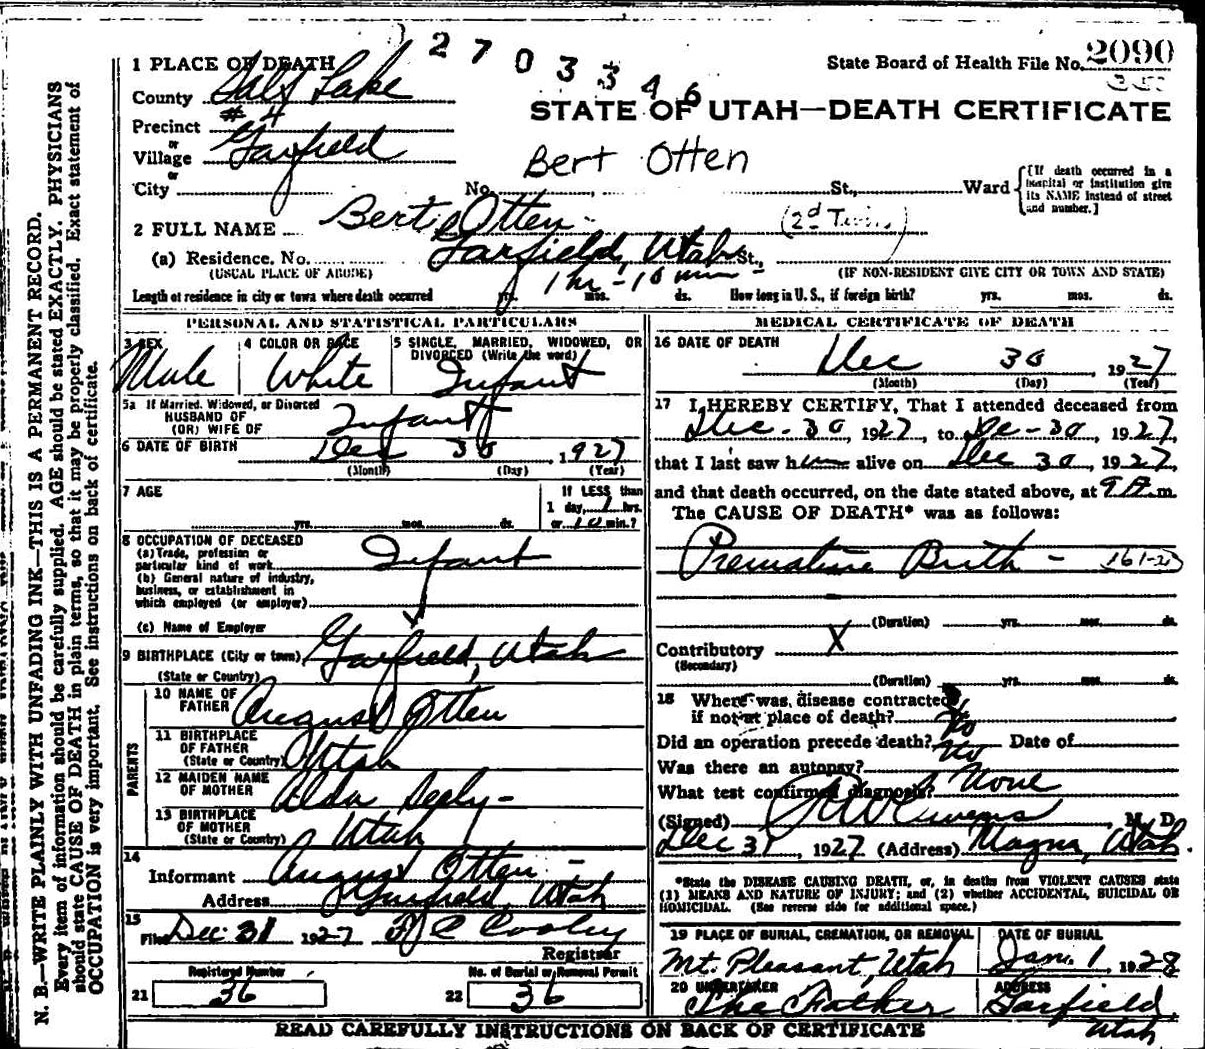 2 7 0 3 3 4 6
State Board of Health File No. 2090
STATE OF UTAH—DEATH CERTIFICATE
1 PLACE OF DEATH
County Salt Lake
Precinct #4
or
Village Garfield
or
City No. St., Ward
Bert Otten
{If death occurred in a hospital or institution give its NAME instead of street and number.]
2 FULL NAME Bert Otten (2d Twin)
(a) Residence. No. Garfield, Utah St.,
(USUAL PLACE OF ABODE) (IF NON-RESIDENT GIVE CITY OR TOWN AND STATE)
Length of residence in city or town where death occurred yrs. mos. ds. 1 hr - 10 min How long in U. S., if foreign birth? yrs. mos. ds.
PERSONAL AND STATISTICAL PARTICULARS
3 SEX Male
4 COLOR OR RACE White
5 SINGLE, MARRIED, WIDOWED, OR DIVORCED (Write the word) Infant
5a If Married, Widowed, or Divorced
HUSBAND OF
(OR) WIFE OF Infant
6 DATE OF BIRTH Dec 30 1927
(Month) (Day) (Year)
7 AGE
yrs. mos. ds.
If LESS than
1 day, 1 hrs.
or 10 min.?
8 OCCUPATION OF DECEASED
(a) Trade, profession or
particular kind of work Infant
(b) General nature of industry,
business, or establishment in
which employed (or employer)
(c) Name of Employer
9 BIRTHPLACE (City or town) Garfield, Utah
(State or Country)
PARENTS
10 NAME OF FATHER August Otten
11 BIRTHPLACE OF FATHER Utah
(State or Country)
12 MAIDEN NAME OF MOTHER Alda Seely-
13 BIRTHPLACE OF MOTHER Utah
(State or Country)
14
Informant August Otten -
Address Garfield, Utah
15
Filed Dec 31 1927 F C Cooley
Registrar
21 Registered Number 36
22 No. of Burial or Removal Permit 36
MEDICAL CERTIFICATE OF DEATH
16 DATE OF DEATH
Dec 30 1927
(Month) (Day) (Year)
17 I HEREBY CERTIFY, That I attended deceased from
Dec - 30, 1927, to Dec - 30, 1927,
that I last saw him alive on Dec 30, 1927
and that death occurred, on the date stated above, at 9 A.m.
The CAUSE OF DEATH* was as follows:
Premature Birth - 161-2
(Duration) yrs. mos. ds.
Contributory X
(Secondary)
(Duration) yrs. mos. ds.
18 Where was disease contracted,
if not at place of death? No
Did an operation precede death? No Date of
Was there an autopsy?
What test confirmed diagnosis? None
(Signed) Owens, M. D.
Dec 31, 1927 (Address) Magna, Utah.
*State the DISEASE CAUSING DEATH, or, in deaths from VIOLENT CAUSES state
(1) MEANS AND NATURE OF INJURY; and (2) whether ACCIDENTAL, SUICIDAL OR
HOMICIDAL. (See reverse side for additional space.)
19 PLACE OF BURIAL, CREMATION, OR REMOVAL Mt. Pleasant, Utah
DATE OF BURIAL Jan. 1, 1928
20 UNDERTAKER The Father
ADDRESS Garfield, Utah
READ CAREFULLY INSTRUCTIONS ON BACK OF CERTIFICATE
N. B.—WRITE PLAINLY WITH UNFADING INK—THIS IS A PERMANENT RECORD.
Every item of information should be carefully supplied. AGE should be stated EXACTLY. PHYSICIANS
should state CAUSE OF DEATH in plain terms, so that it may be properly classified. Exact statement of
OCCUPATION is very important. See instructions on back of certificate.